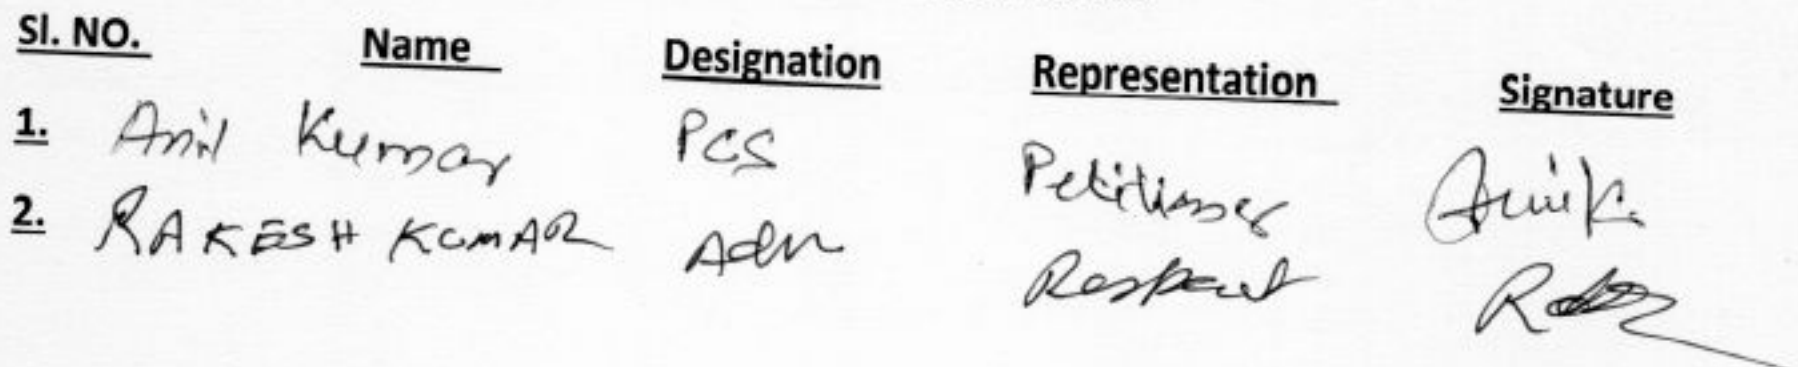 Sl. NO. Name Designation Representation Signature
1. Anil Kumar PCS Petitioner Anil K.
2. RAKESH KUMAR Adv